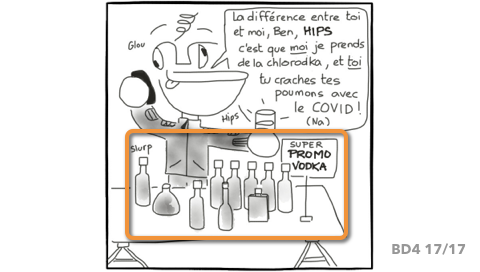 La différence entre toi
et moi, Ben, HIPS
c'est que moi je prends
de la chlorodka, et toi
tu craches tes
poumons avec
le COVID!
(Na)
Glou
Hips
Slurp
SUPER
PROMO
VODKA
BD4 17/17